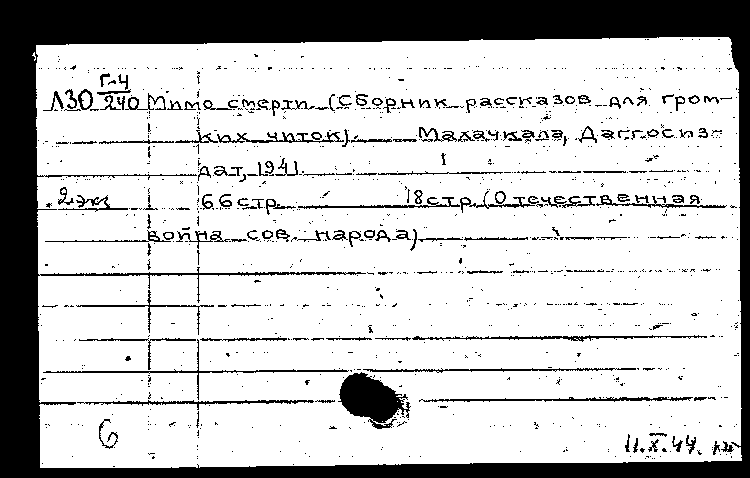 Г-4
Л30 240 Мимо смерти. (Сборник рассказов для гром-
ких читок). Махачкала, Даггосиз-
дат, 1941.
2 экз 66 стр 18 стр. (Отечественная
война сов. народа).
6
11.X.44.